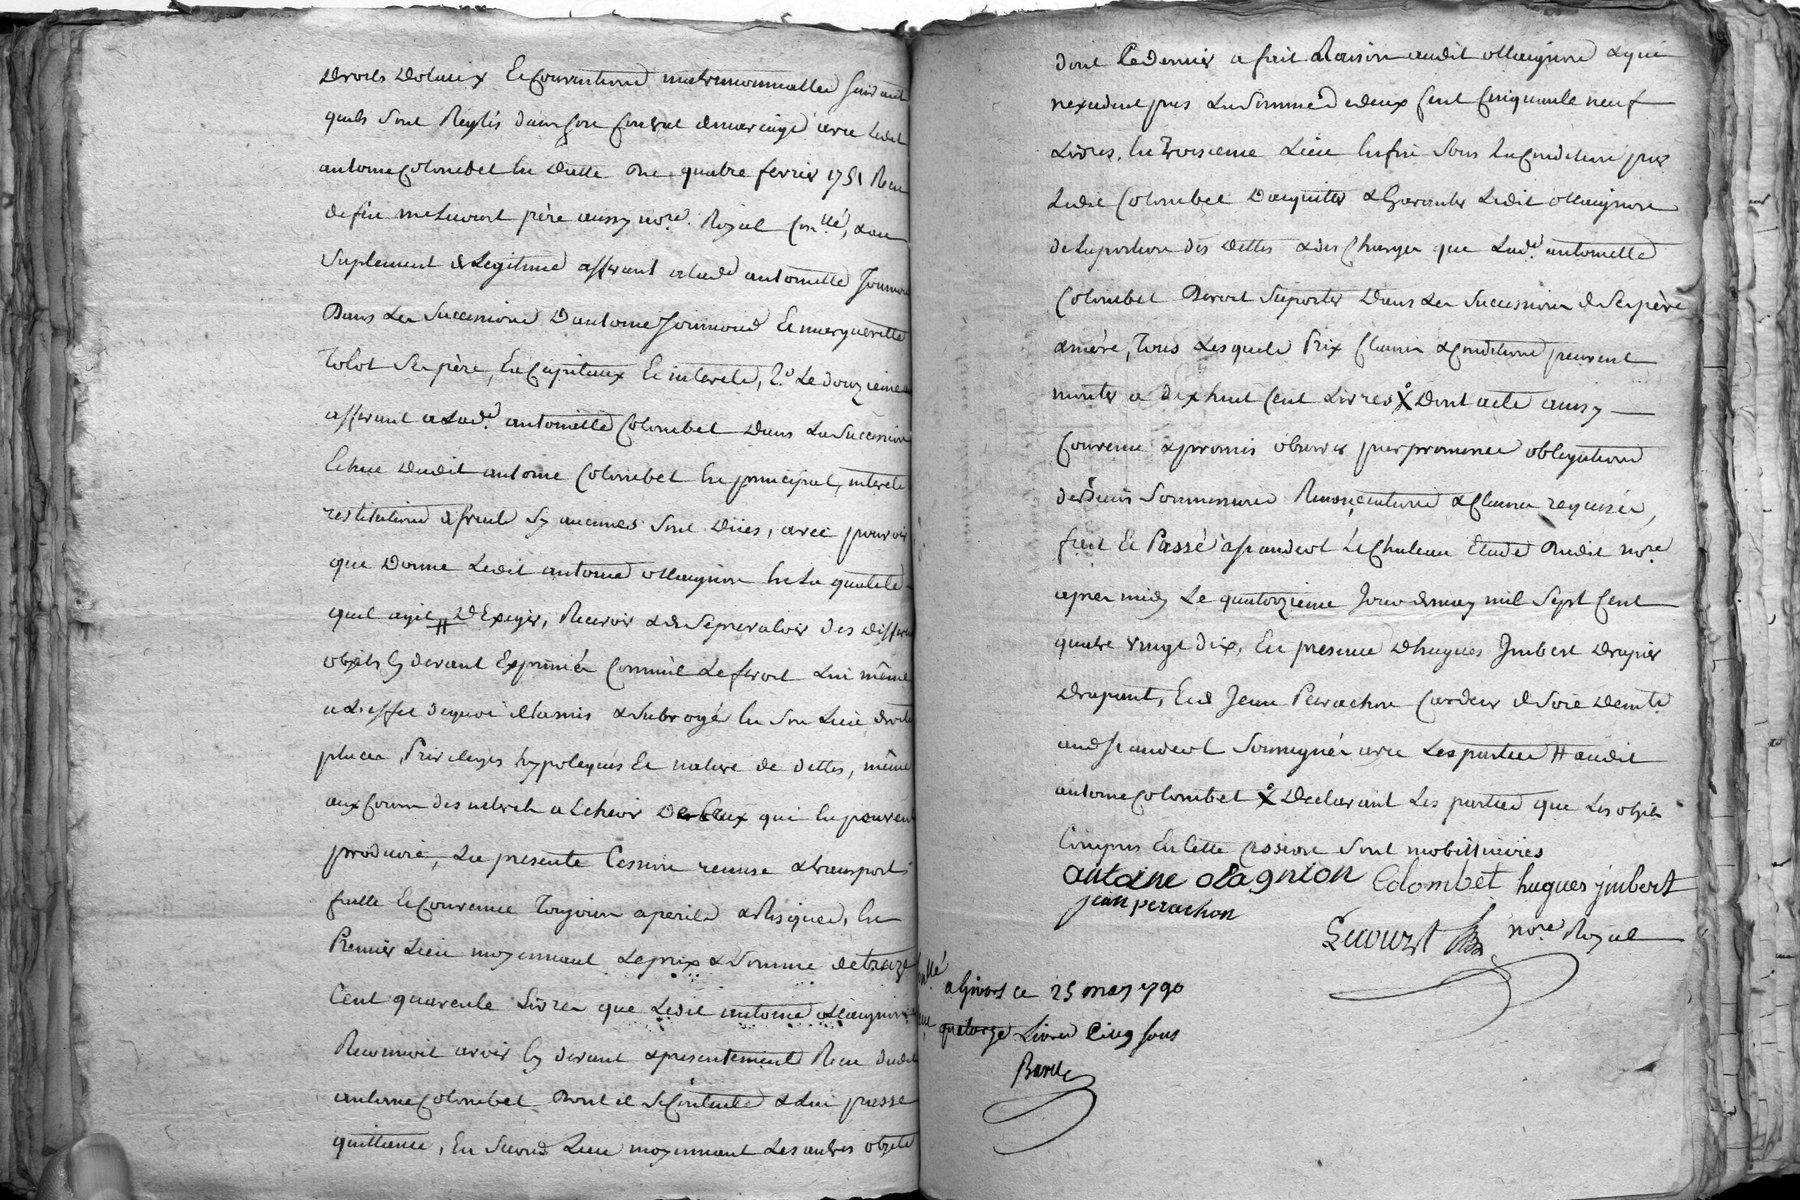 droits dotaux et conventions matrimonialles suivant
quils sont Reglés dans son contrat de mariage avec ledit
antoine Colombet en datte du quatre fevrier 1751 Recu
de feu me Lecourt père aussy nore. Royal
suplement de Legitime afferant a lade antoinette
Dans La Succession D'antoine et margueritte
Tolot Ses père, en Capitaux et interets, 2o. Le douzieme
afferant a Lade. antoinette Colombet dans La Succession
Echue dudit antoine Colombet en principal, interets
restitution de fruits sy aucunes sont dües, avec pouvoir
que donne Ledit antoine ollaignon en La qualité
quil agit # D'Exiger, Recevoir & de se prevaloir des differents
objets cy devant Exprimés comme Le feroit Lui même
a L'effet de quoi il la mis & subrogé en son Lieu, droits
places, Privileges hypoteques et nature de dettes, même
aux cours des interets a Echeoir De Ceux qui en peuvent
produire, La presente Cession remise & transport
faitte et convenue Toujours a perils & Risques, en
Premier Lieu moyennant Le prix & Somme de treize
Cent quarente Livres que Ledit antoine ollaignon
Reconnoit avoir cy devant & presentement Recu dudit
antoine Colombet Dont il se Contente & Lui passe
quittance, En Second Lieu moyennant Les autres objets
dont Ce dernier a fait Raison audit ollaignon & qui
nexedent pas La Somme de deux Cent Cinquante neuf
Livres, En Troisieme Lieu Enfin Sous La Condition par
Ledit Colombet D'aquitter & Garantir Ledit ollaignon
de La portion des dettes & des Charges que Lade. antoinette
Colombet Devoit Suporter Dans La Succession de Ses père
& mére, Tous Lesquels Prix Clauses & Conditions peuvent
monter a dix huit Cent Livres X Dont acte aussy
Convenu & promis observer par promesse obligations
de Biens Soumissions Renonciations & Clauses requises,
fait Et Passé a st andeol Le Chateau Etude Dudit nore
apres midy Le quatorzieme Jour de may mil Sept Cent
quatre vingt dix, En presence D'hugues Jmbert Drapier
Drapant, Et de Jean Perachon Cardeur de Soie Demts
audt st andeol Soussignés avec Les parties # audit
antoine Colombet X Declarant Les parties que Les objets
Compris En Cette cession sont mobilliaires
antoine olagnion Colombet hugues jmbert
jean perachon
Lecourt nore Royal
a Givors ce 25 may 1790
quatorze Livres Cinq sous